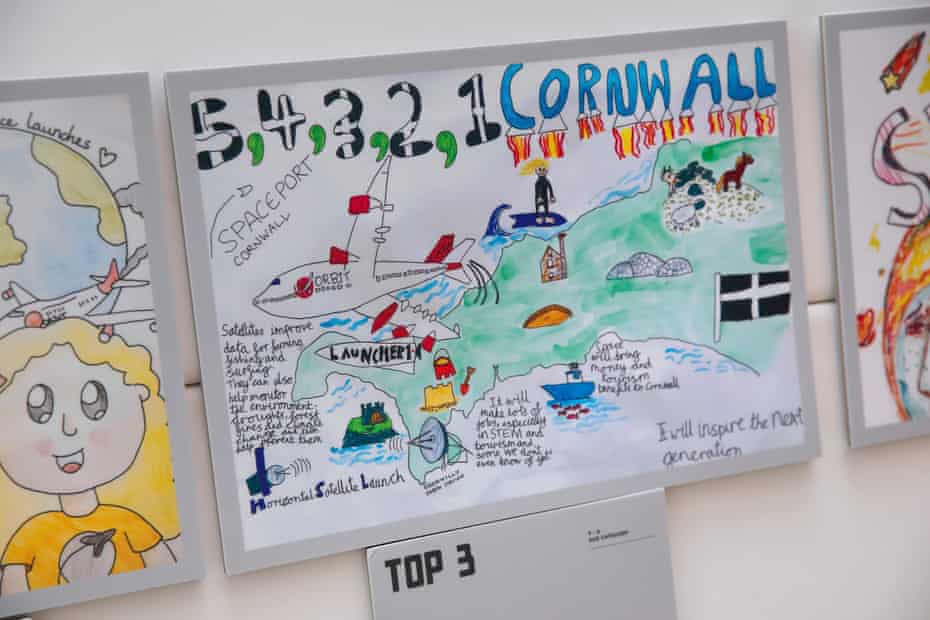 ce launches
5,4,3,2,1 CORNWALL
SPACEPORT
CORNWALL
ORBIT
LAUNCHER1
Satellites improve
data for farming
fishing and
surfing
They can also
help monitor
the environment
droughts, forest
fires and climate
change and can
help prevent them
It will
make lots of
jobs, especially
in STEM and
tourism and
some we don't
even know of yet
Space
will bring
money and
tourism
benefits to Cornwall
I will inspire the next
generation
Horizontal Satellite Launch
GOONHILLY
EARTH STATION
TOP 3